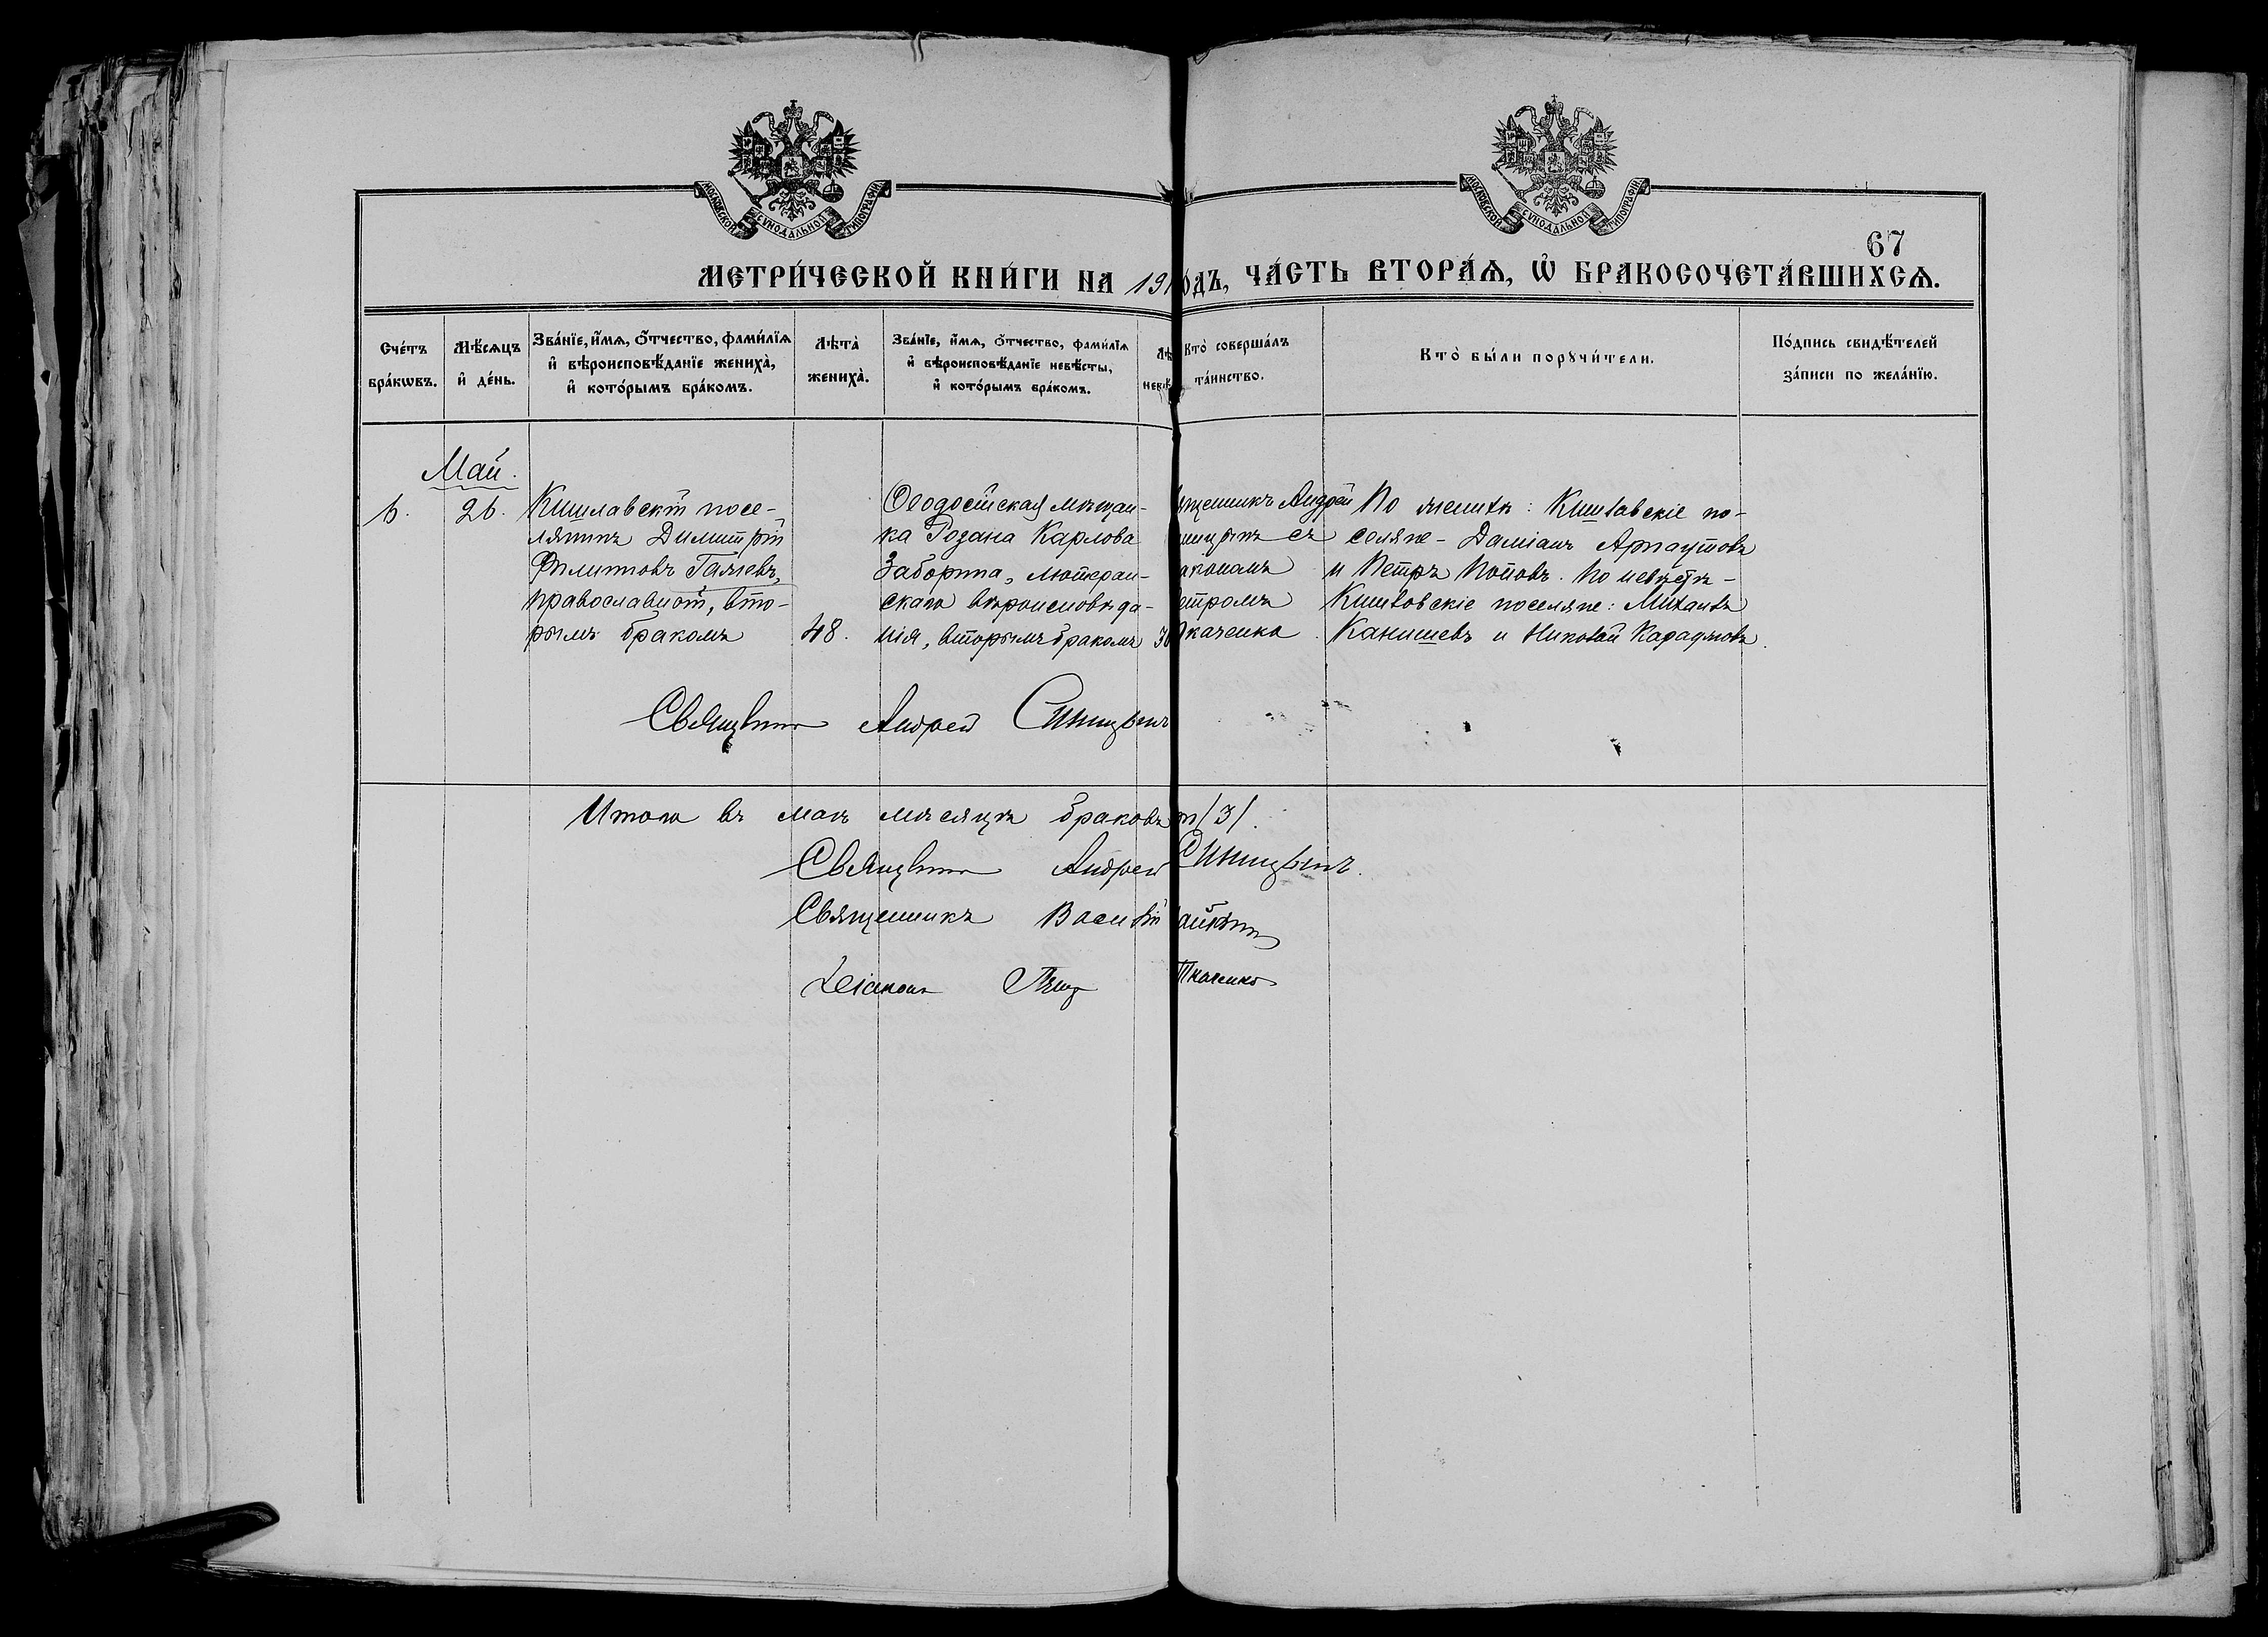 МОСКОВСКОЙ СУНОДАЛЬНОЙ ТИПОГРАФІИ
МОСКОВСКОЙ СУНОДАЛЬНОЙ ТИПОГРАФІИ
67
МЕТРИ́ЧЕСКОЙ КНИ́ГИ НА 191
ОДЪ, ЧА́СТЬ ВТОРА́Ѧ, Ѡ БРАКОСОЧЕТА́ВШИХСѦ.
Сче́тъ бра́кѡвъ.
Мѣ́сѧцъ и҆ де́нь.
Зва́нїе, и҆́мѧ, ѻ҆́тчество, фами́лїѧ и҆ вѣроисповѣ́данїе жениха̀, и҆ кото́рымъ бра́комъ.
Лѣта̀ жениха̀.
Зва́нїе, и҆́мѧ, ѻ҆́тчество, фами́лїѧ и҆ вѣроисповѣ́данїе невѣ́сты, и҆ кото́рымъ бра́комъ.
Кто̀ соверша́лъ та́инство.
Кто̀ бы́ли порꙋчи́тели.
По́дпись свидѣ́телей за́писи по жела́нїю.
Май.
6.
26.
Кишлавскій посе-
лянинъ Димитрій
Филипповъ Галчевъ,
православный, вто-
рымъ бракомъ
48.
Ѳеодосійская мѣщан-
ка Розана Карлова
Заборина, лютеран-
скаго вѣроисповѣда-
нія, вторымъ бракомъ
3
щенникъ Андрей
иницынъ съ
акономъ
етромъ
каченко
По женихѣ: Кишлавскіе по-
селяне - Даміанъ Арнаутовъ
и Петръ Поповъ. По невѣстѣ -
Кишлавскіе поселяне: Михаилъ
Канишевъ и Николай Карадчовъ.
Священникъ Андрей Синицынъ
Итого въ маѣ мѣсяцѣ браковъ /3/.
Священникъ Андрей Синицынъ.
Священникъ Василій
Діаконъ Петръ Ткаченко